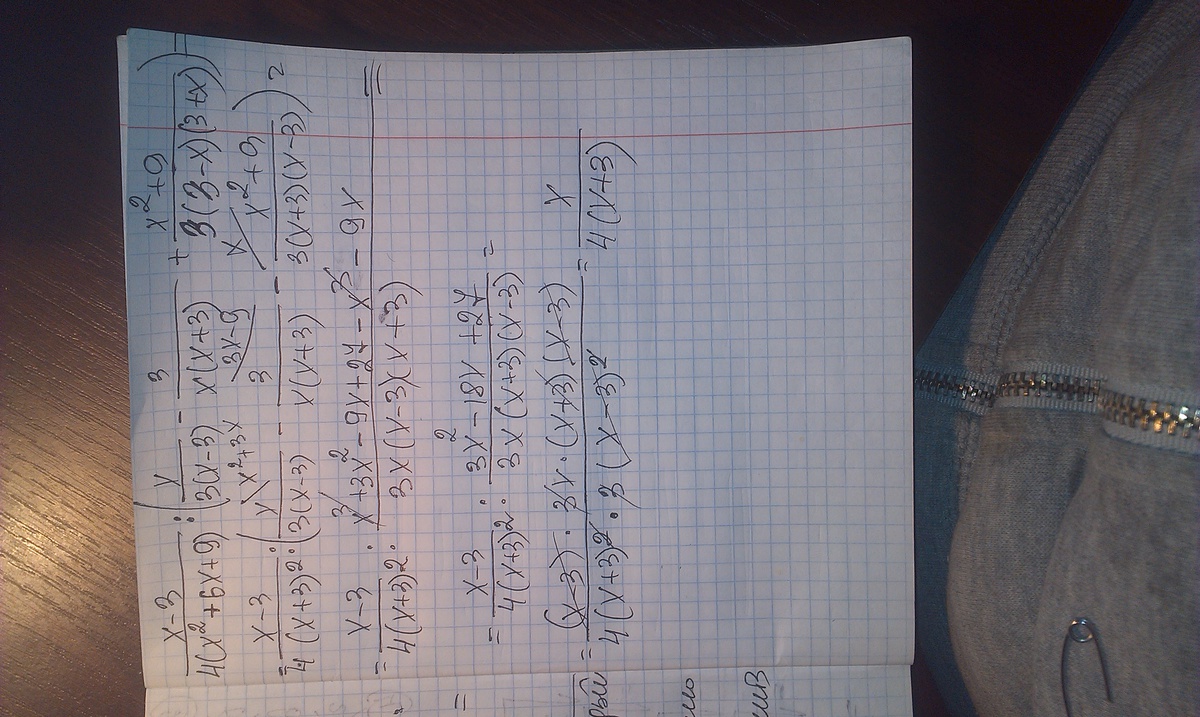 (x-3)/(4(x²+6x+9)) : (x/(3(x-3)) - 3/(x(x+3)) + (x²+9)/(3(3-x)(3+x))) =
x²+3x 3x-9 x
= (x-3)/(4(x+3)²) : (x/(3(x-3)) - 3/(x(x+3)) - (x²+9)/(3(x+3)(x-3))) =
= (x-3)/(4(x+3)²) : (x³+3x²-9x+27-x³-9x)/(3x(x-3)(x+3)) =
= (x-3)/(4(x+3)²) : (3x²-18x+27)/(3x(x+3)(x-3)) =
= ((x-3)·3x·(x+3)(x-3))/(4(x+3)²·3(x-3)²) = x/(4(x+3))
=
рый